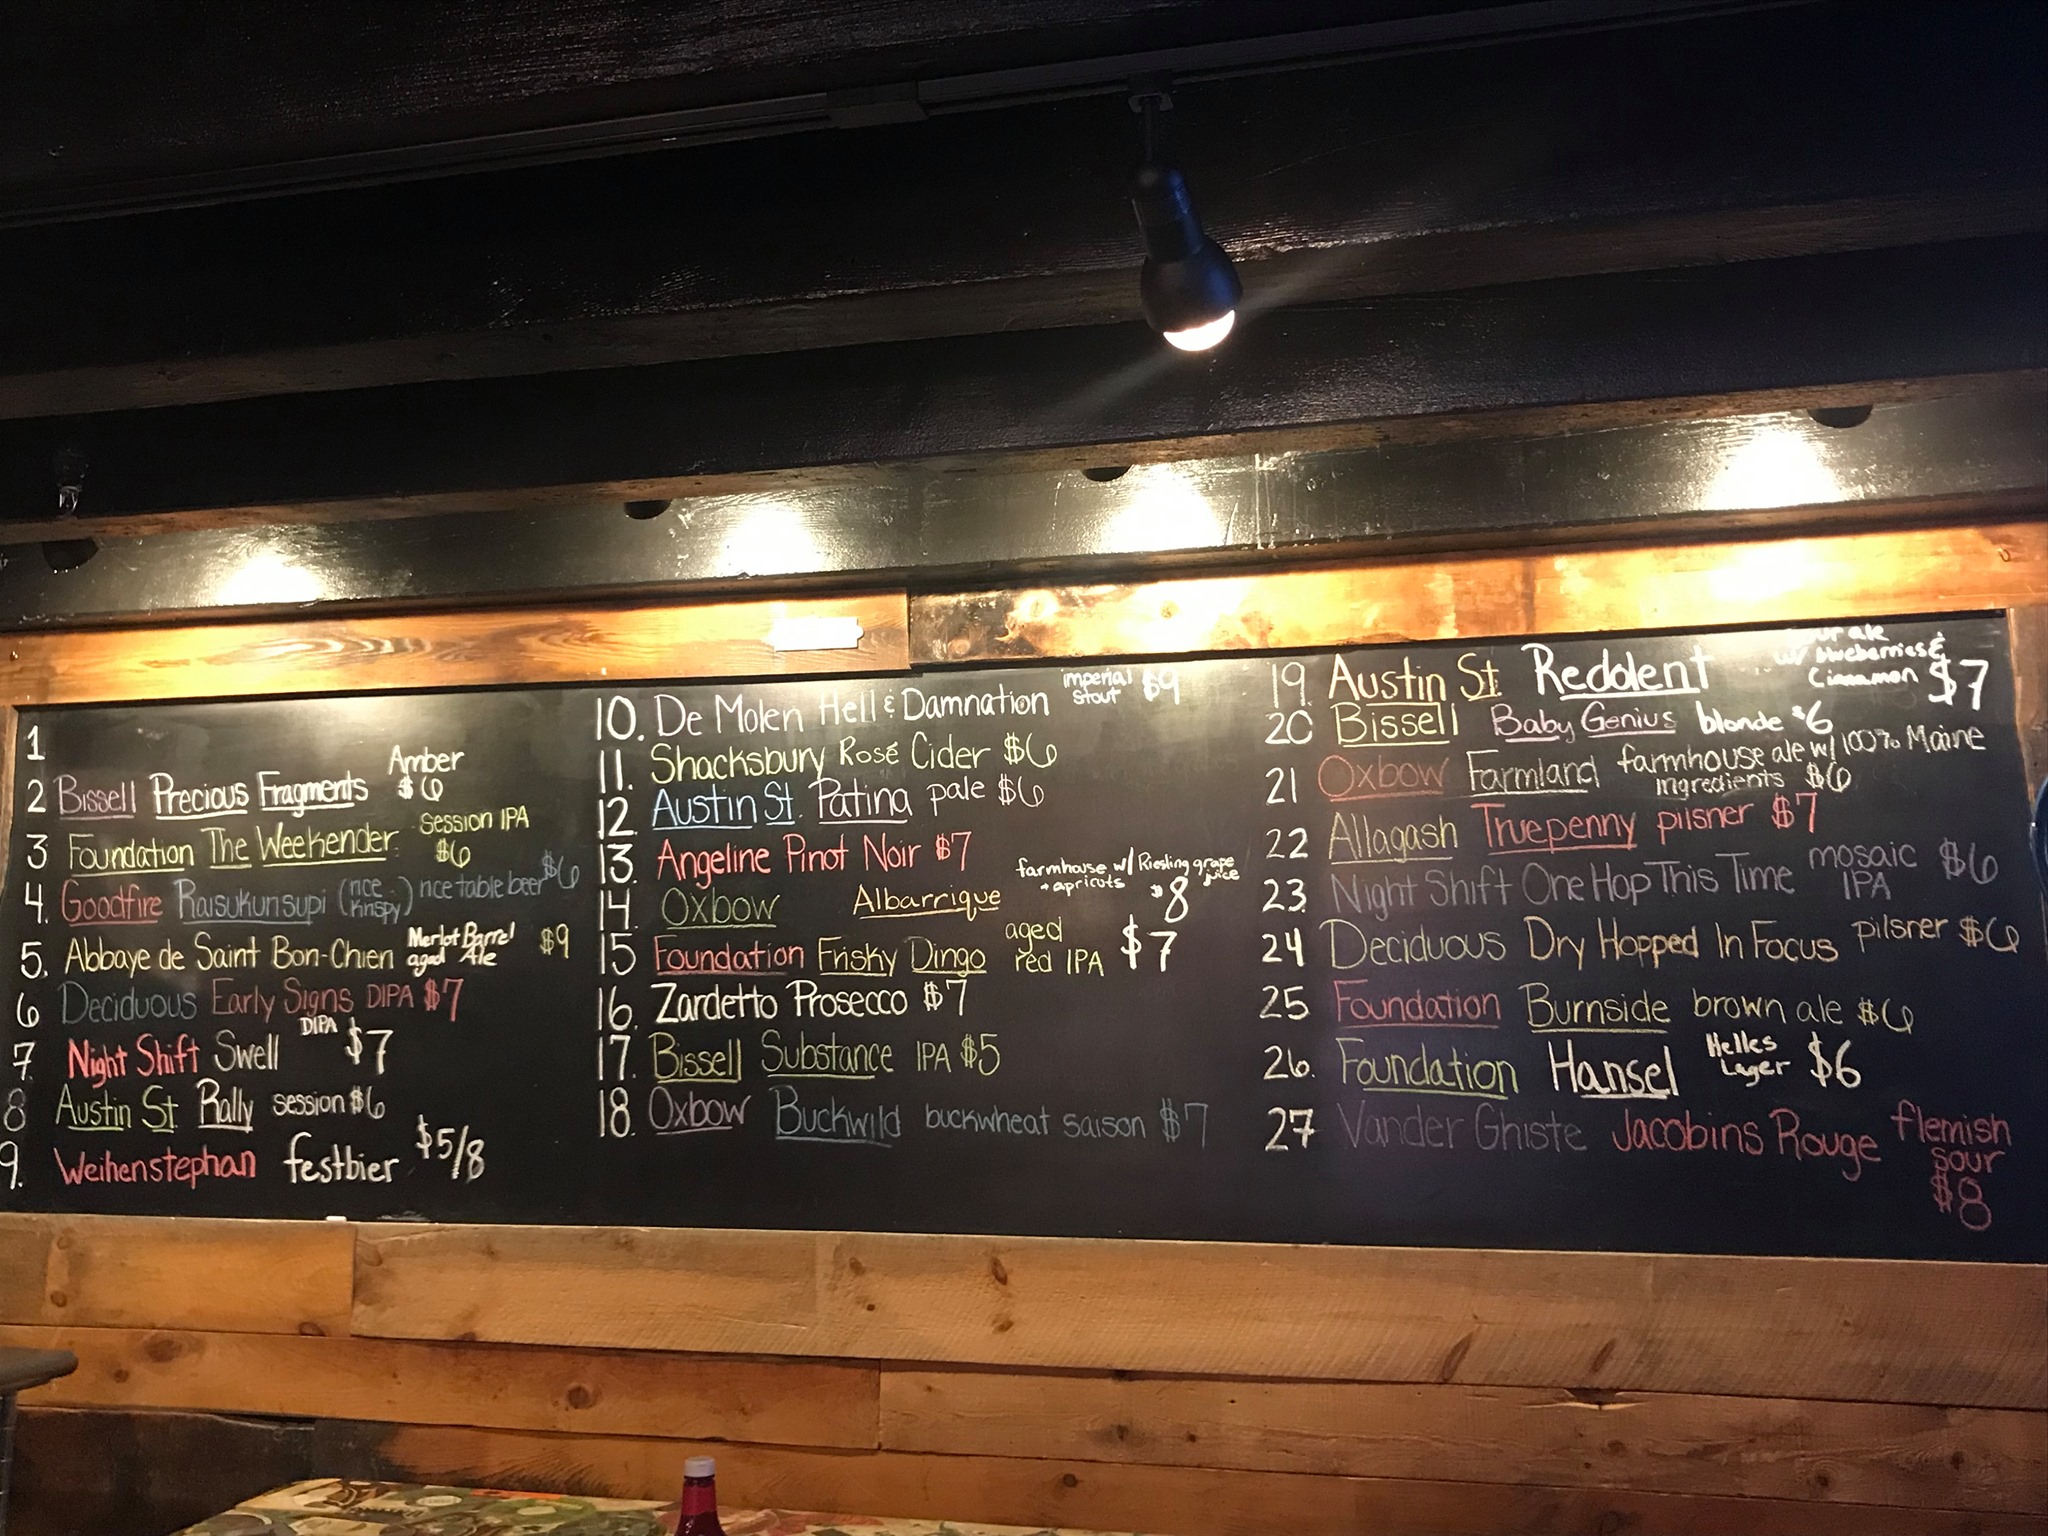 1
2 Bissell Precious Fragments Amber $6
3 Foundation The Weekender Session IPA $6
4. Goodfire Raisukunsupi (rice krispy) rice table beer $6
5. Abbaye de Saint Bon-Chien Merlot Barrel aged Ale $9
6 Deciduous Early Signs DIPA $7
7 Night Shift Swell DIPA $7
8 Austin St. Rally session $6
9. Weihenstephan festbier $5/8
10. De Molen Hell & Damnation imperial stout $9
11. Shacksbury Rosé Cider $6
12 Austin St. Patina pale $6
13. Angeline Pinot Noir $7
14. Oxbow Albarrique farmhouse w/ Riesling grape juice + apricots $8
15 Foundation Frisky Dingo aged red IPA $7
16. Zardetto Prosecco $7
17. Bissell Substance IPA $5
18. Oxbow Buckwild buckwheat saison $7
19. Austin St. Redolent ale w/ blueberries & Cinnamon $7
20 Bissell Baby Genius blonde $6
21 Oxbow Farmland farmhouse ale w/ 100% Maine ingredients $6
22 Allagash Truepenny pilsner $7
23. Night Shift One Hop This Time mosaic IPA $6
24 Deciduous Dry Hopped In Focus pilsner $6
25 Foundation Burnside brown ale $6
26. Foundation Hansel Helles Lager $6
27 Vander Ghiste Jacobins Rouge flemish sour $8